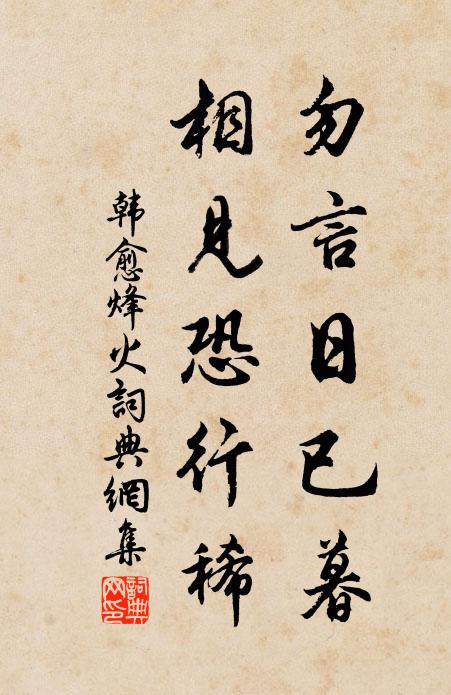 勿言日已暮
相見恐行稀
韩愈烽火詞典網集
詞典